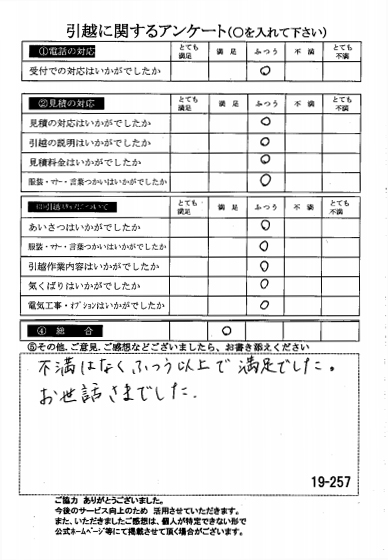 引越に関するアンケート(○を入れて下さい)
①電話の対応 とても満足 満足 ふつう 不満 とても不満
受付での対応はいかがでしたか ○
②見積の対応 とても満足 満足 ふつう 不満 とても不満
見積の対応はいかがでしたか ○
引越の説明はいかがでしたか ○
見積料金はいかがでしたか ○
服装・マナー・言葉つかいはいかがでしたか ○
とても満足 満足 ふつう 不満 とても不満
あいさつはいかがでしたか ○
服装・マナー・言葉つかいはいかがでしたか ○
引越作業内容はいかがでしたか ○
気くばりはいかがでしたか ○
電気工事・オプションはいかがでしたか ○
④ 総 合 ○
⑤その他、ご意見、ご感想などございましたら、お書き添えください
不満はなくふつう以上で満足でした。
お世話さまでした.
19-257
ご協力 ありがとうございました。
今後のサービス向上のため 活用させていただきます。
また、いただきましたご感想は、個人が特定できない形で
公式ホームページ等にて掲載させて頂く場合がございます。